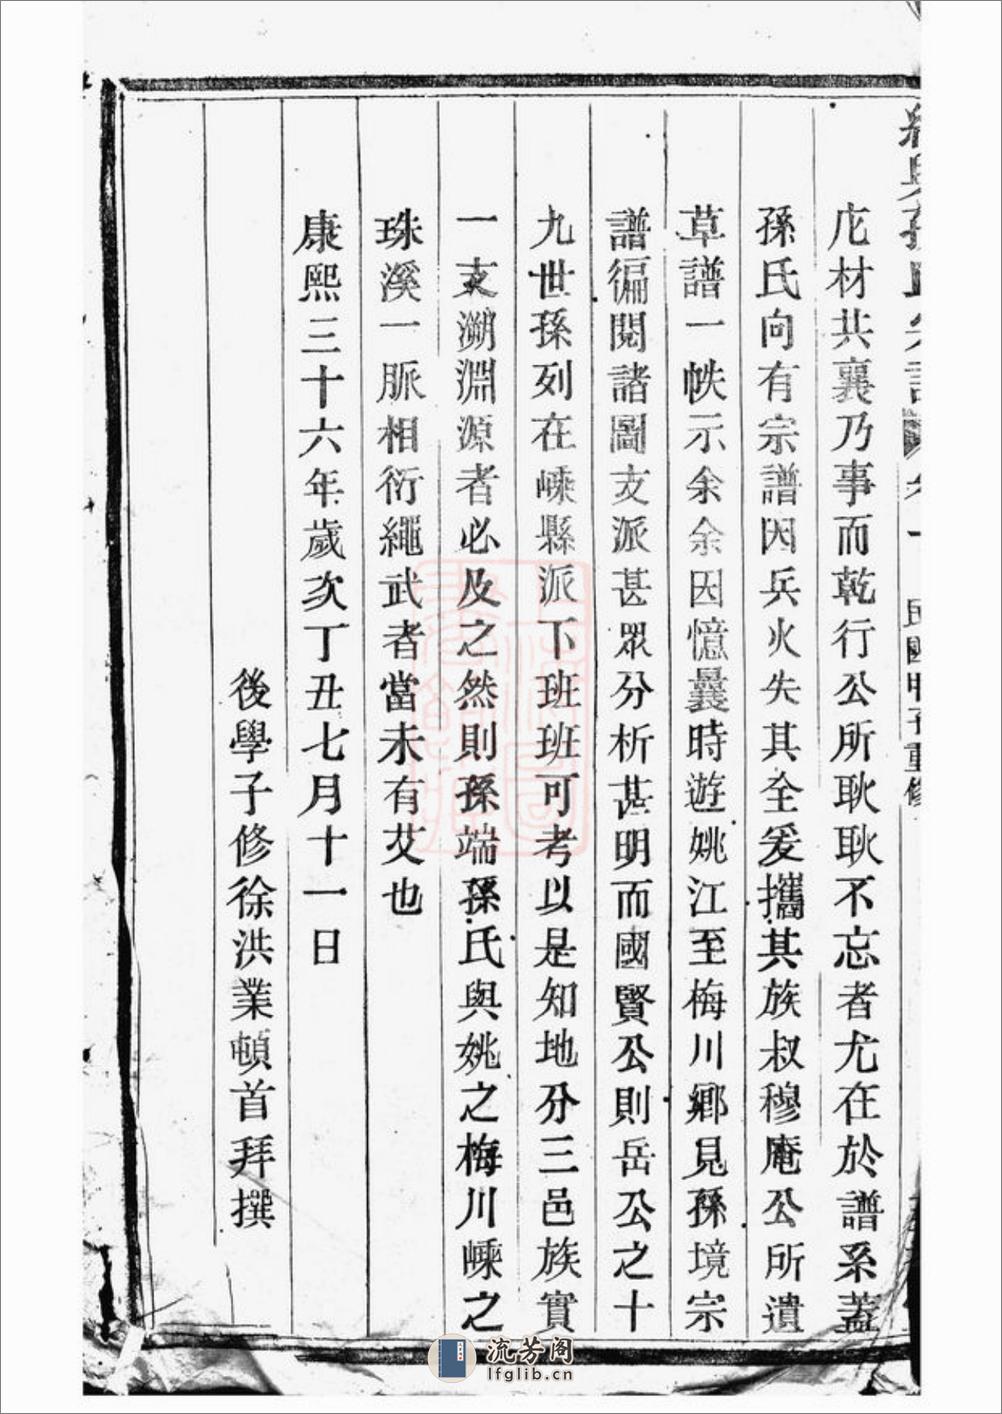 庀材共襄乃事而乾行公所耿耿不忘者尤在於譜系蓋
孫氏向有宗譜因兵火失其全爰攜其族叔穆庵公所遺
草譜一帙示余余因憶曩時遊姚江至梅川鄉見孫境宗
譜徧閱諸圖支派甚眾分析甚明而國賢公則岳公之十
九世孫列在嵊縣派下班班可考以是知地分三邑族實
一支溯淵源者必及之然則孫端孫氏與姚之梅川嵊之
珠溪一脈相衍繩武者當未有艾也
康熙三十六年歲次丁丑七月十一日
後學子修徐洪業頓首拜撰
民國甲子重修
流芳阁
lfglib.cn